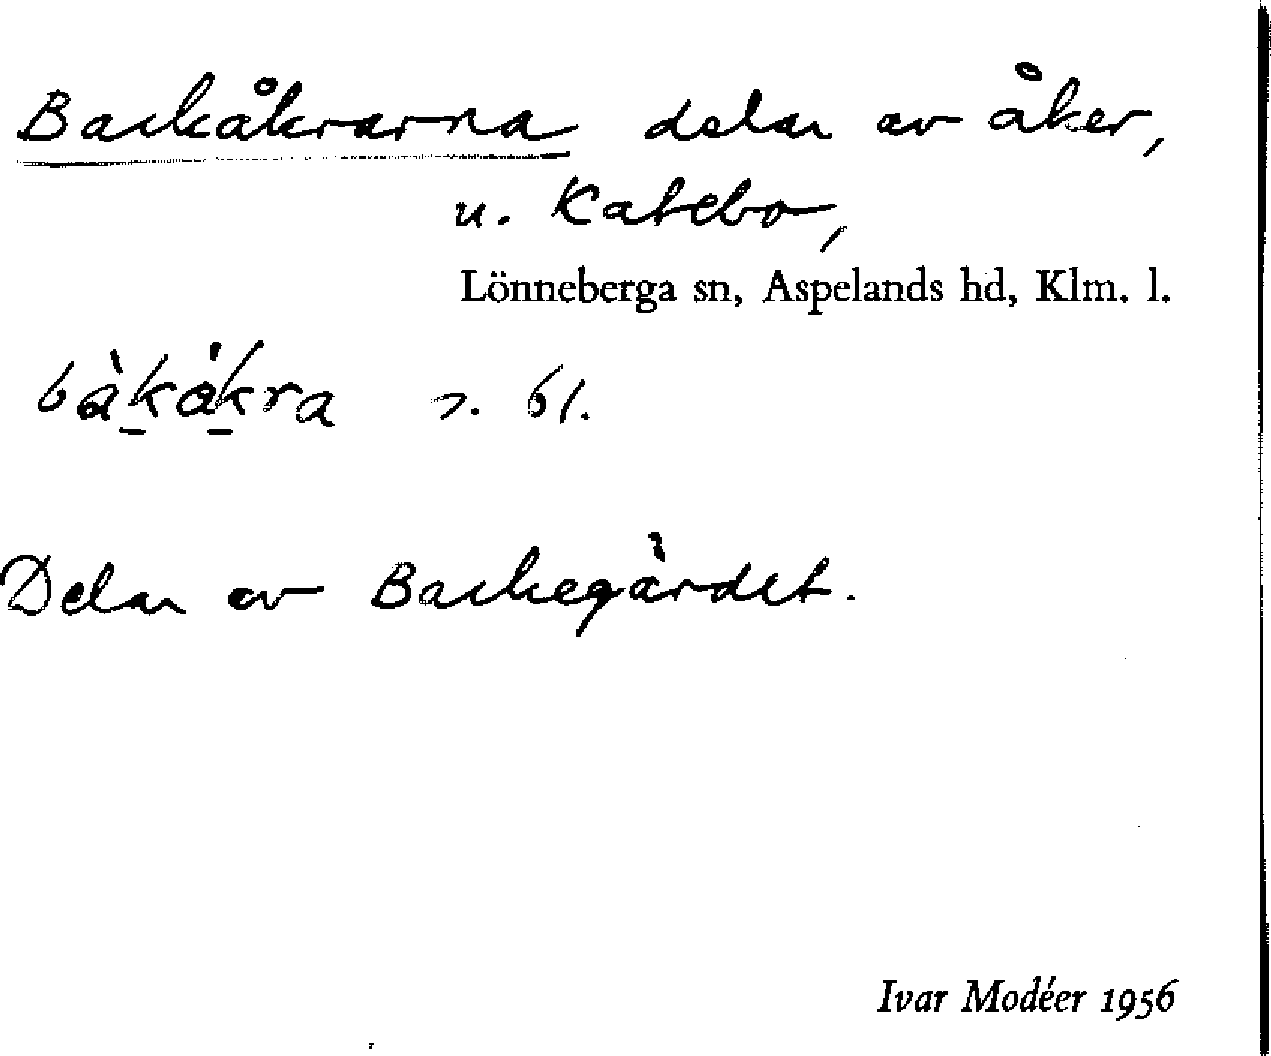 Backåkrarna delar av åker,
u. Katebo,
Lönneberga sn, Aspelands hd, Klm. l.
bàk̠åk̠ra s. bl.
Delar av Backegärdet.
Ivar Modéer 1956